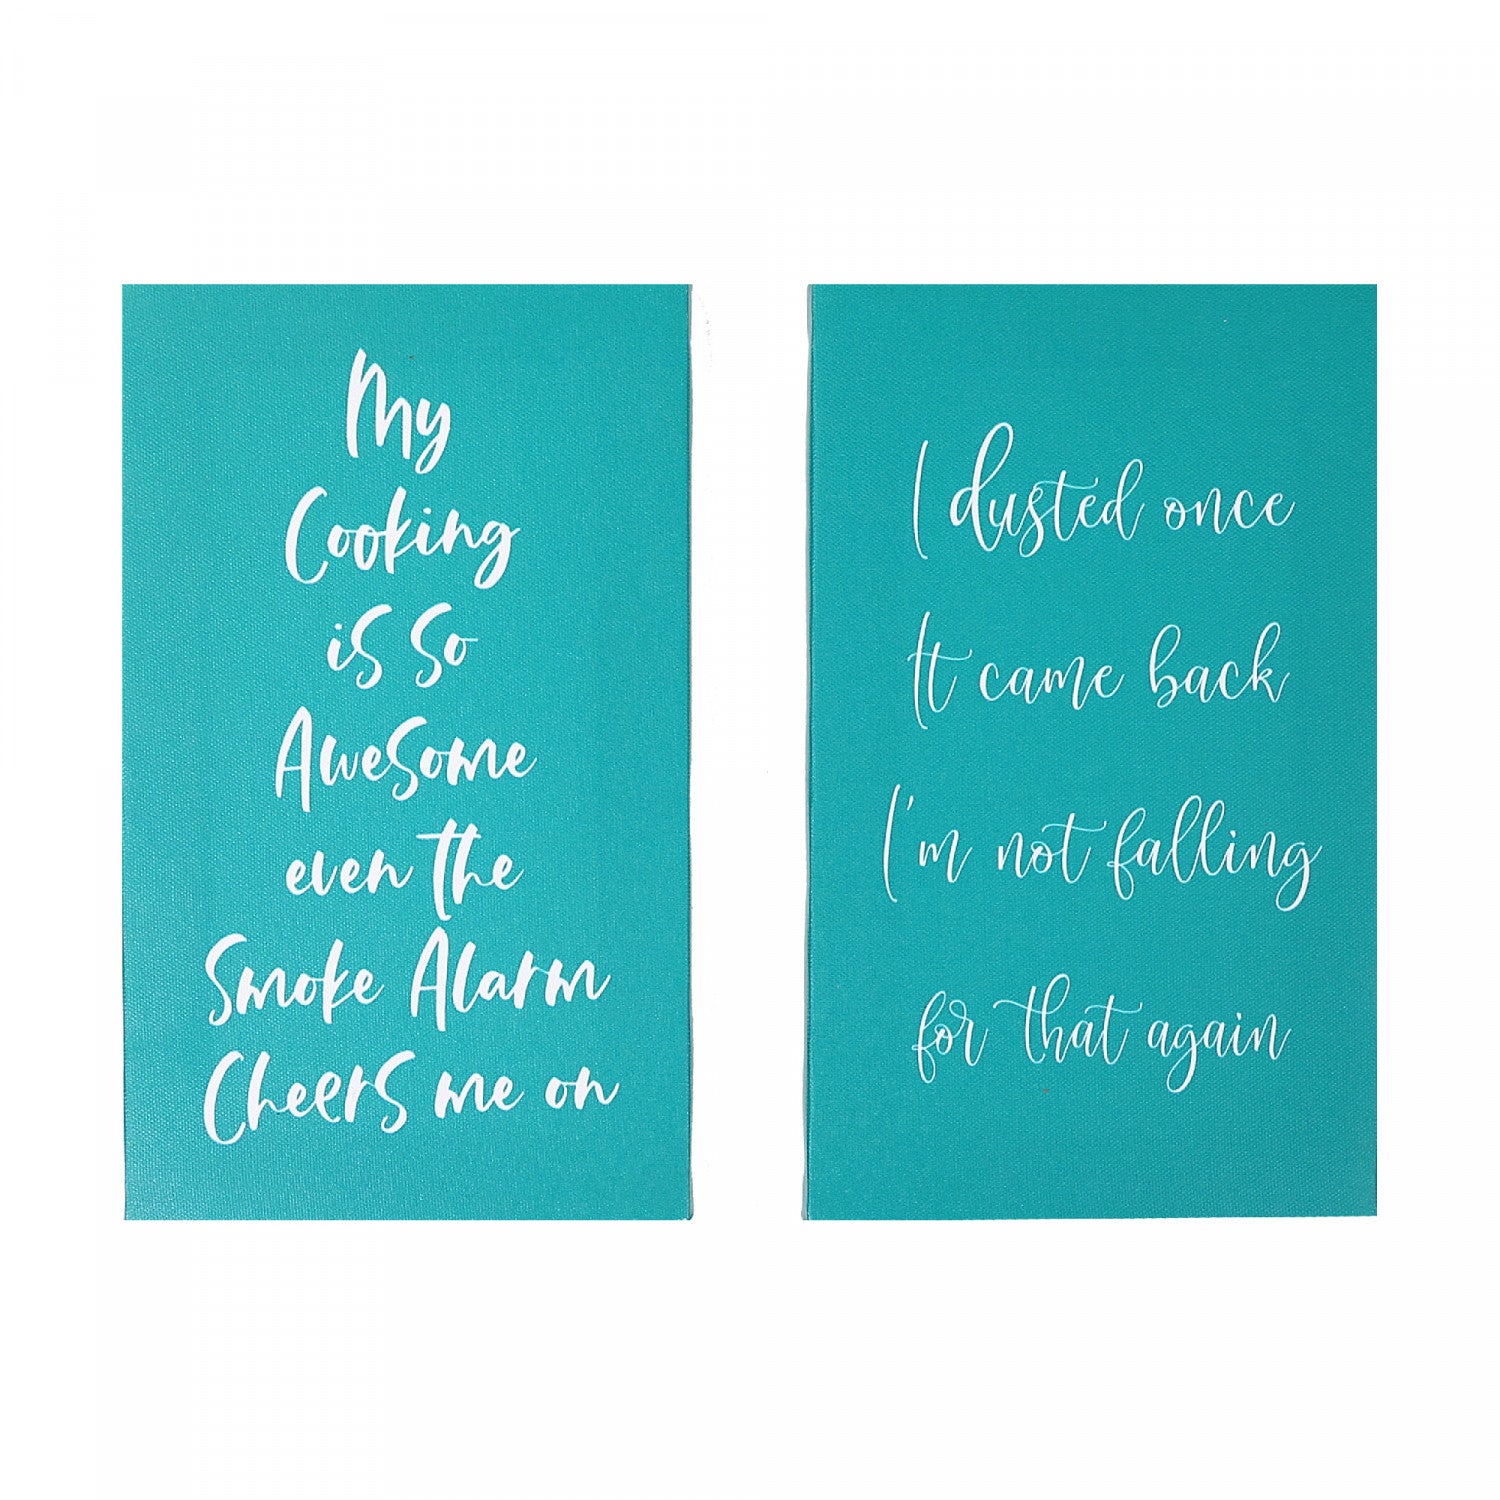 My
Cooking
is so
Awesome
even the
Smoke Alarm
Cheers me on
I dusted once
It came back
I'm not falling
for that again